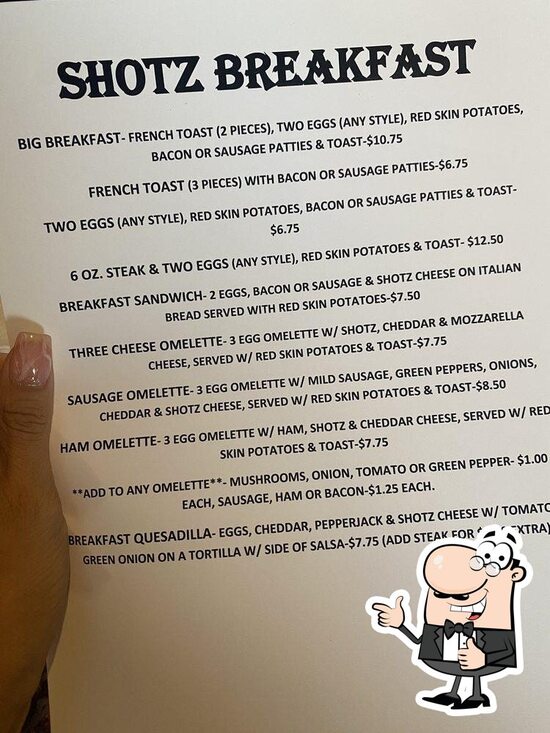 SHOTZ BREAKFAST
BIG BREAKFAST- FRENCH TOAST (2 PIECES), TWO EGGS (ANY STYLE), RED SKIN POTATOES,
BACON OR SAUSAGE PATTIES & TOAST-$10.75
FRENCH TOAST (3 PIECES) WITH BACON OR SAUSAGE PATTIES-$6.75
TWO EGGS (ANY STYLE), RED SKIN POTATOES, BACON OR SAUSAGE PATTIES & TOAST-
$6.75
6 OZ. STEAK & TWO EGGS (ANY STYLE), RED SKIN POTATOES & TOAST- $12.50
BREAKFAST SANDWICH- 2 EGGS, BACON OR SAUSAGE & SHOTZ CHEESE ON ITALIAN
BREAD SERVED WITH RED SKIN POTATOES-$7.50
THREE CHEESE OMELETTE- 3 EGG OMELETTE W/ SHOTZ, CHEDDAR & MOZZARELLA
CHEESE, SERVED W/ RED SKIN POTATOES & TOAST-$7.75
SAUSAGE OMELETTE- 3 EGG OMELETTE W/ MILD SAUSAGE, GREEN PEPPERS, ONIONS,
CHEDDAR & SHOTZ CHEESE, SERVED W/ RED SKIN POTATOES & TOAST-$8.50
HAM OMELETTE- 3 EGG OMELETTE W/ HAM, SHOTZ & CHEDDAR CHEESE, SERVED W/ RED
SKIN POTATOES & TOAST-$7.75
**ADD TO ANY OMELETTE**- MUSHROOMS, ONION, TOMATO OR GREEN PEPPER- $1.00
EACH, SAUSAGE, HAM OR BACON-$1.25 EACH.
BREAKFAST QUESADILLA- EGGS, CHEDDAR, PEPPERJACK & SHOTZ CHEESE W/ TOMATO
GREEN ONION ON A TORTILLA W/ SIDE OF SALSA-$7.75 (ADD STEAK FOR EXTRA)